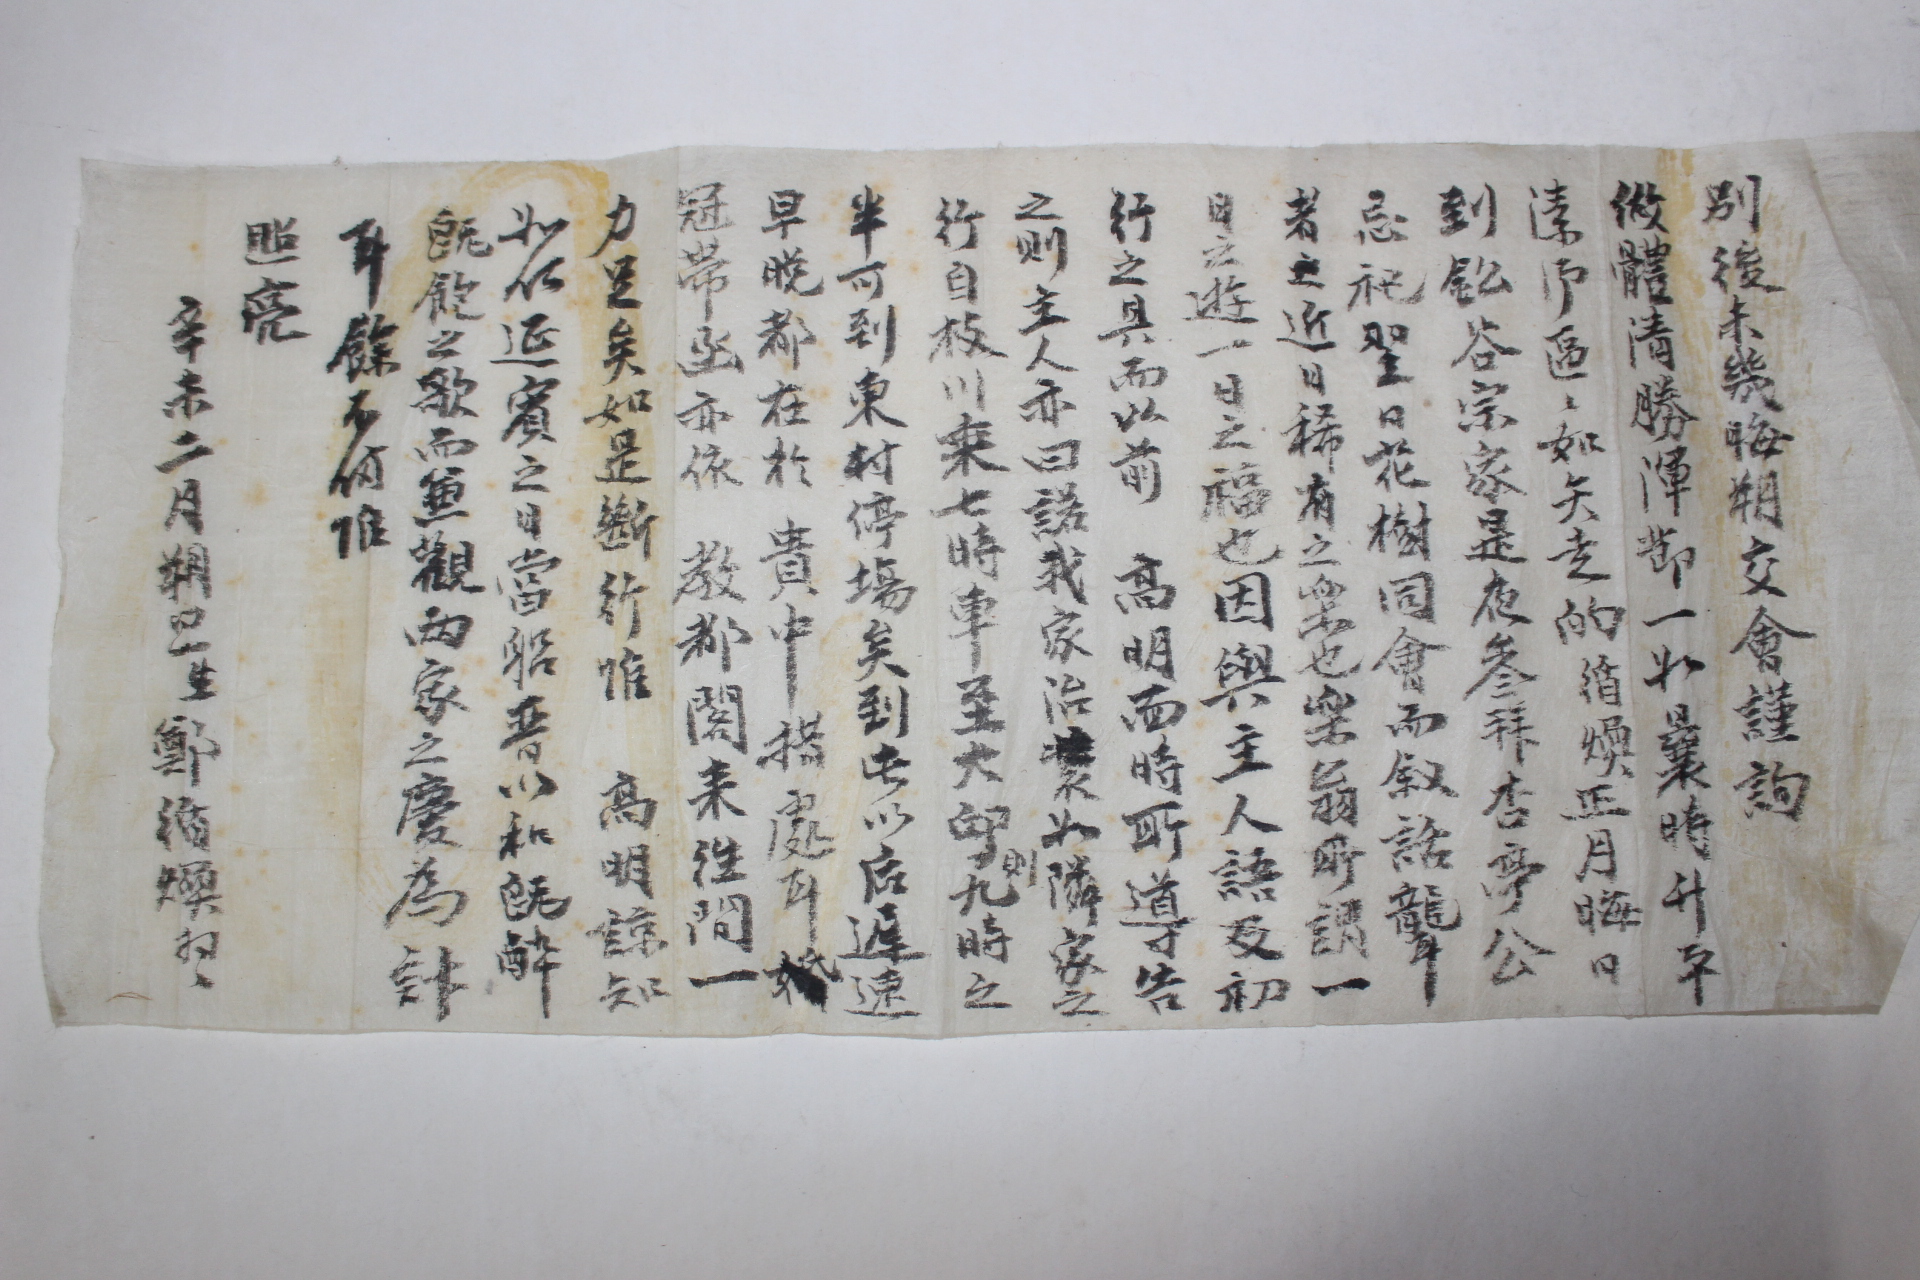 別後未幾晦朔交會謹詢
攸體清勝渾節一如曩時升平
溸仰區〻如矢走的循煥正月晦日
到鈆谷宗家是夜參拜杏亭公
忌祀翌日花樹同會而敘話龍耳
者之近日稀有之樂也樂翁所謂一
日之遊一日之福也因與主人語及初
行之具而以前 高明面時所導告
之則主人亦曰諾我家治裝如隣家之
行自枝川乘七時車至大邱則九時之
半可到東村停場矣到此以后遲速
早晩都在於 貴中措處耳
冠帶丞亦依 教都閣來往間一
力足矣如是斷行惟 高明諒知
如何延賓之日當貽晋以和旣醉
旣飽之歌而兼觀兩家之慶爲計
耳餘不備惟
照亮
辛未二月朔日生鄭循煥